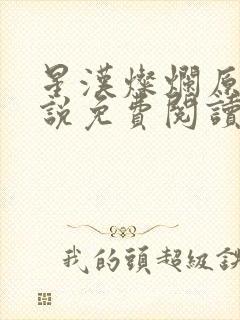 星漢燦爛原
說免費閱讀
我的頭超級